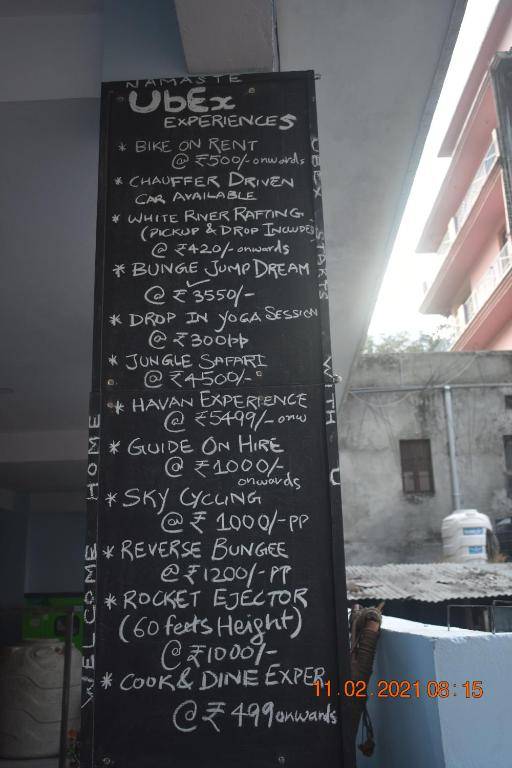 NAMASTE
UbEx
EXPERIENCES
* BIKE ON RENT
@ ₹500/- onwards
* CHAUFFER DRIVEN
CAR AVAILABLE
* WHITE RIVER RAFTING
(PICKUP & DROP INCLUDED
@ ₹420/- onwards
* BUNGE JUMP DREAM
@ ₹ 3550/-
* DROP IN YOGA SESSION
@ ₹300PP
* JUNGLE SAFARI
@ ₹4500/-
* HAVAN EXPERIENCE
@ ₹5499/- onw
* GUIDE ON HIRE
@ ₹1000/-
onwards
* SKY CYCLING
@ ₹ 1000/-PP
* REVERSE BUNGEE
@ ₹1200/-PP
* ROCKET EJECTOR
(60 feets Height)
@ ₹1000/-
* COOK & DINE EXPER
@ ₹ 499 onwards
WELCOME HOME
UBEX STARTS WITH U
11.02.2021 08:15